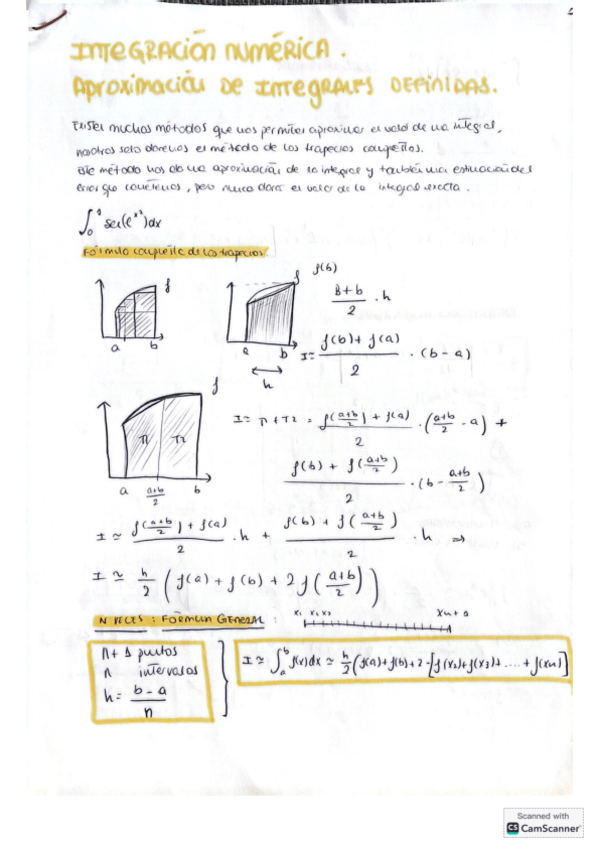 INTEGRACIÓN NUMÉRICA.
Aproximación DE INTEGRALES DEFINIDAS.
Existen muchos métodos que nos permiten aproximar el valor de una integral,
nosotros solo daremos el método de los trapecios compuestos.
Este método nos da una aproximación de la integral y también una estimación del
error que cometemos, pero nunca dará el valor de la integral exacta.
∫₀¹ sen(e^{x²})dx
Fórmula compuesta de los trapecios
f(b)
f f
B+b/2 · h
a b a b
h
I≃ f(b)+f(a)/2 · (b-a)
f
T1 T2
a a+b/2 b
I≃ T1+T2 = f(a+b/2)+f(a)/2 · (a+b/2 - a) +
f(b)+f(a+b/2)/2 · (b - a+b/2)
I ≃ f(a+b/2)+f(a)/2 · h + f(b)+f(a+b/2)/2 · h ⇒
I ≃ h/2 (f(a)+f(b)+2f(a+b/2))
N VECES : FÓRMULA GENERAL : x₁ x₂ x₃ xₙ₊₁
n+1 puntos
n intervalos
h = b-a/n
I ≃ ∫ₐᵇ f(x)dx ≃ h/2 (f(a)+f(b)+2·[f(x₂)+f(x₃)+....+f(xₙ)]
Scanned with
CS CamScanner